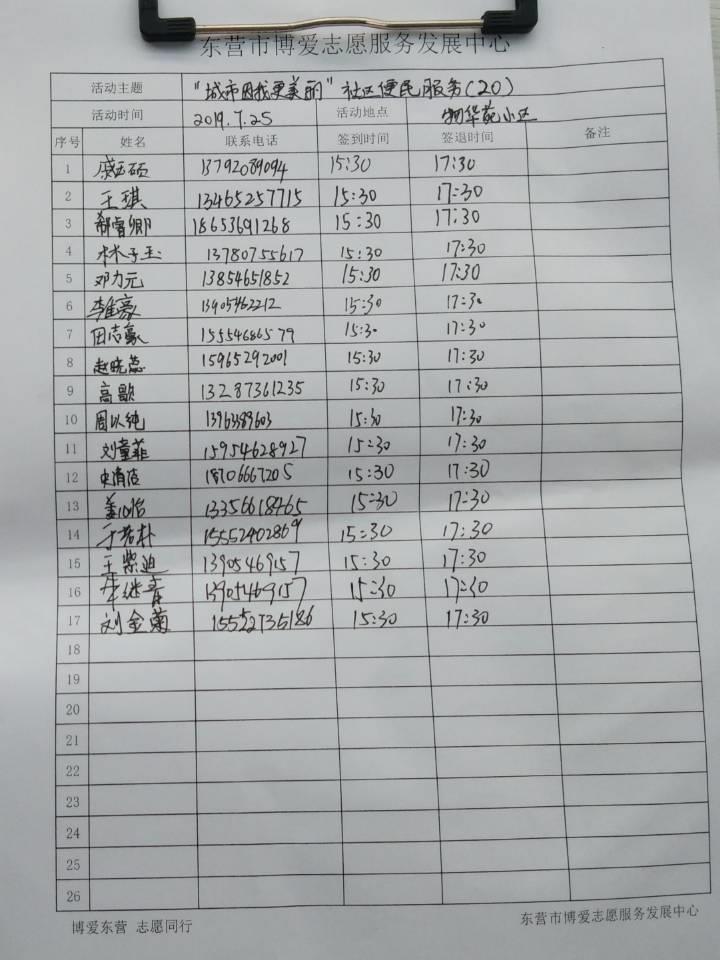 东营市博爱志愿服务发展中心
活动主题 "城市因我更美丽"社区便民服务(20)
活动时间 2019.7.25 活动地点 物华苑小区
序号 姓名 联系电话 签到时间 签退时间 备注
1 戚硕 13792089094 15:30 17:30
2 王琪 13465257715 15:30 17:30
3 郗睿卿 18653691268 15:30 17:30
4 林子玉 13780755617 15:30 17:30
5 邓力元 13854651852 15:30 17:30
6 李佳豪 13905462212 15:30 17:30
7 田志豪 15554686579 15:30 17:30
8 赵晓蕊 15965292001 15:30 17:30
9 高歌 13287361235 15:30 17:30
10 周以纯 13963389603 15:30 17:30
11 刘童菲 15954628927 15:30 17:30
12 18706667205 15:30 17:30
13 13356618465 15:30 17:30
14 于若朴 15552402869 15:30 17:30
15 王紫迪 13905469157 15:30 17:30
16 13905469157 15:30 17:30
17 刘金菊 15552735186 15:30 17:30
18
19
20
21
22
23
24
25
26
博爱东营 志愿同行 东营市博爱志愿服务发展中心